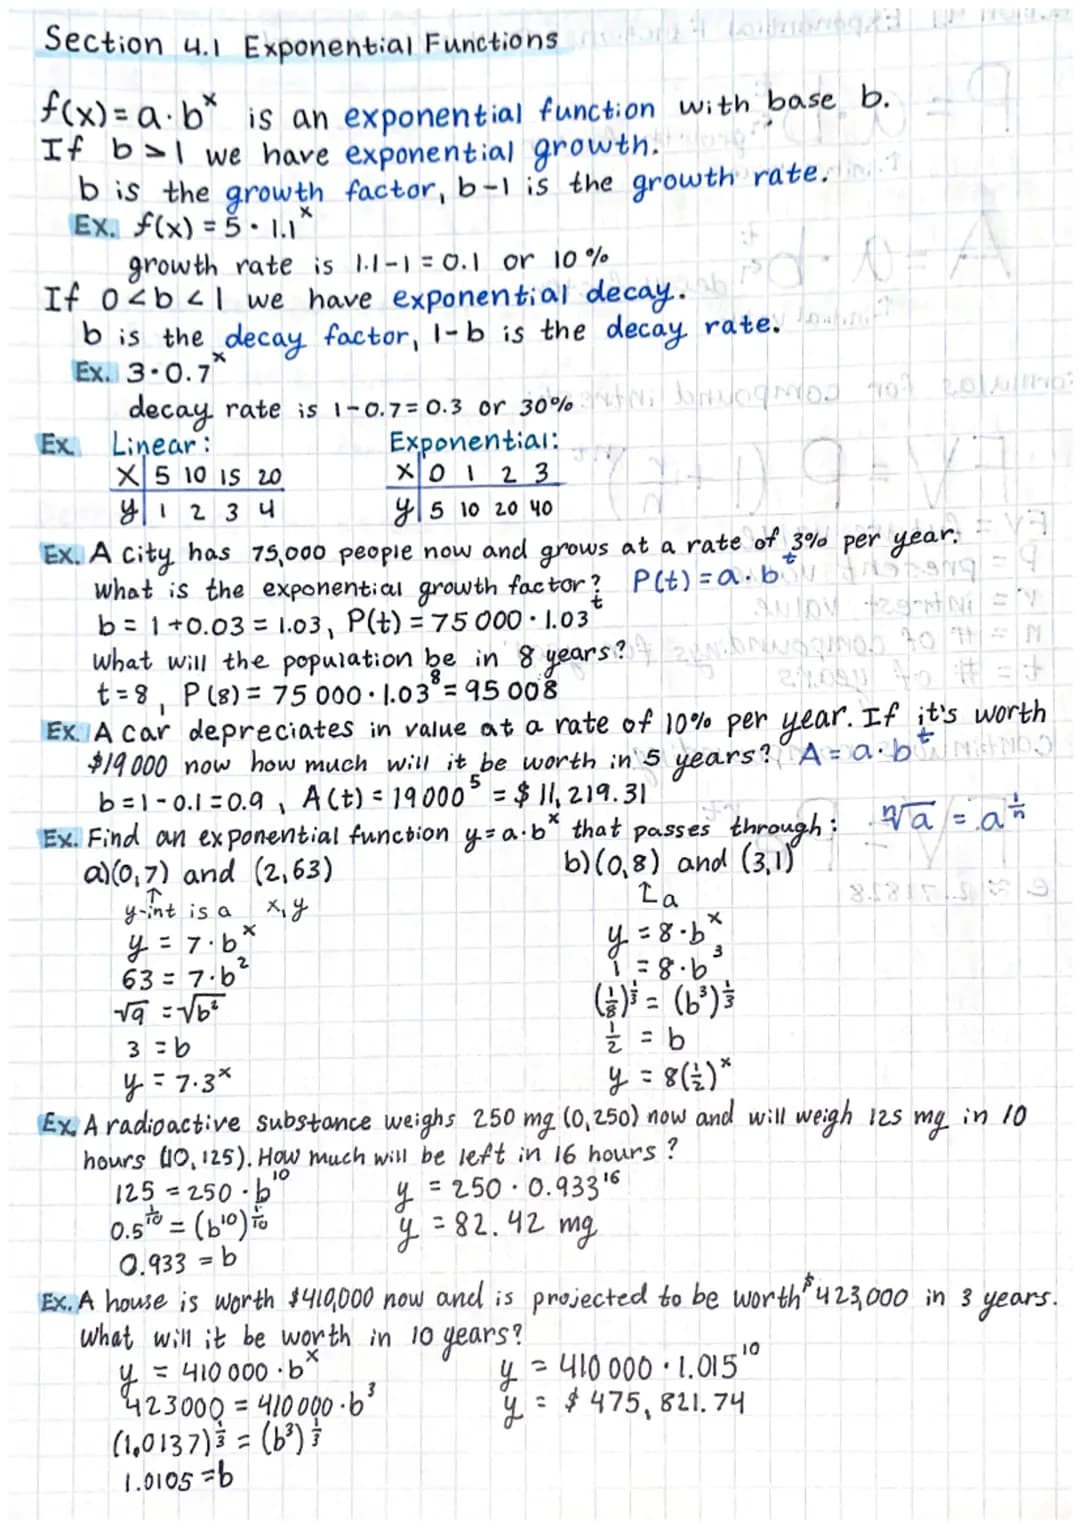 Section 4.1 Exponential Functions
f(x) = a·b^x is an exponential function with base b.
If b>1 we have exponential growth.
b is the growth factor, b-1 is the growth rate.
Ex. f(x) = 5·1.1^x
growth rate is 1.1-1 = 0.1 or 10%
If 0<b<1 we have exponential decay.
b is the decay factor, 1-b is the decay rate.
Ex. 3·0.7^x
decay rate is 1-0.7 = 0.3 or 30%
Ex. Linear: Exponential:
x | 5 10 15 20 x | 0 1 2 3
y | 1 2 3 4 y | 5 10 20 40
Ex. A city has 75,000 people now and grows at a rate of 3% per year.
What is the exponential growth factor? P(t) = a·b^t
b = 1+0.03 = 1.03, P(t) = 75 000·1.03^t
What will the population be in 8 years?
t = 8, P(8) = 75 000·1.03^8 = 95 008
Ex. A car depreciates in value at a rate of 10% per year. If it's worth
$19 000 now how much will it be worth in 5 years? A = a·b^t
b = 1-0.1 = 0.9, A(t) = 19 000^5 = $11,219.31
Ex. Find an exponential function y = a·b^x that passes through: ⁿ√a = a^(1/n)
a) (0,7) and (2,63) b) (0,8) and (3,1)
↑ ↑a
y-int is a x, y
y = 7·b^x y = 8·b^x
63 = 7·b^2 1 = 8·b^3
√9 = √b² (1/8)^(1/3) = (b³)^(1/3)
3 = b 1/2 = b
y = 7·3^x y = 8(1/2)^x
Ex. A radioactive substance weighs 250 mg (0,250) now and will weigh 125 mg in 10
hours (10,125). How much will be left in 16 hours?
125 = 250·b^10 y = 250·0.933^16
0.5^(1/10) = (b^10)^(1/10) y = 82.42 mg
0.933 = b
Ex. A house is worth $410,000 now and is projected to be worth $423,000 in 3 years.
What will it be worth in 10 years?
y = 410 000·b^x y = 410 000·1.015^10
423000 = 410 000·b^3 y = $475,821.74
(1.0137)^(1/3) = (b³)^(1/3)
1.0105 = b